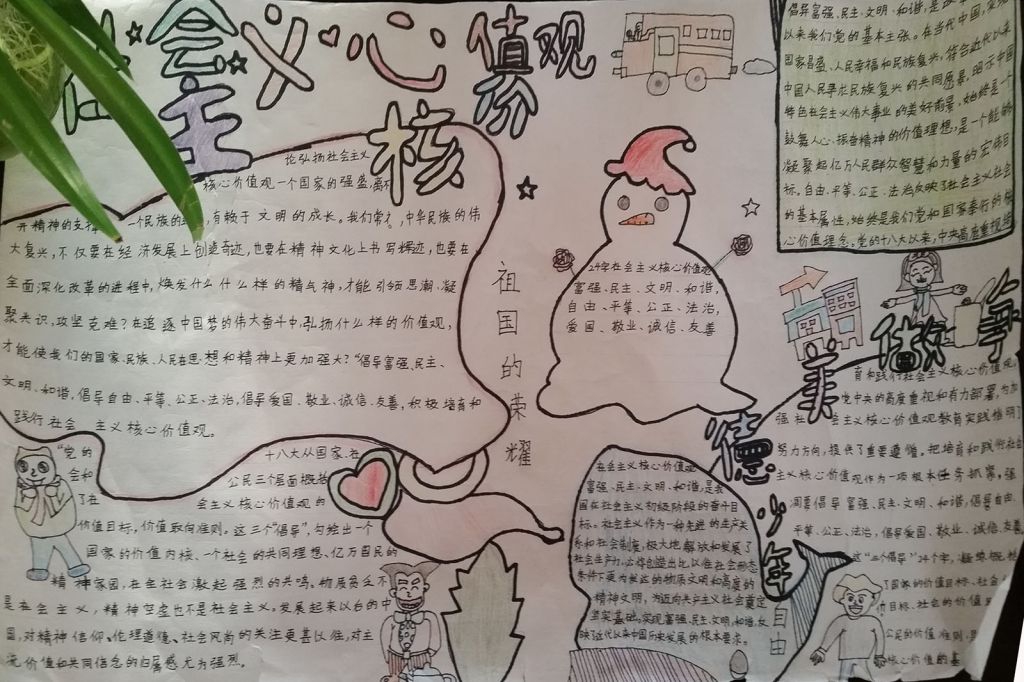 社会主义核心价值观
争做美德少年
倡导富强、民主、文明、和谐,是
以来我们党的基本主张。在当代中国,实现
国家昌盛、人民幸福和民族复兴,符合近代以来
中国人民寻求民族复兴的共同愿景,昭示中国
特色社会主义伟大事业的美好前景,始终是一个
鼓舞人心、振奋精神的价值理想,是一个能够
凝聚起亿万人民群众智慧和力量的宏伟目
标。自由、平等、公正、法治反映了社会主义社会
的基本属性,始终是我们党和国家奉行的核
心价值理念。党的十八大以来,中央高度重视培
论弘扬社会主义
核心价值观一个国家的强盛,离不
开精神的支撑 一个民族的 ,有赖于文明的成长。我们常 ,中华民族的伟
大复兴,不仅要在经济发展上创造奇迹,也要在精神文化上书写辉迹,也要在
全面深化改革的进程中,焕发什么什么样的精气神,才能引领思潮、凝
聚共识,攻坚克难?在追逐中国梦的伟大奋斗中,弘扬什么样的价值观,
才能使我们的国家、民族、人民在思想和精神上更加强大?“倡导富强、民主、
文明、和谐,倡导自由、平等、公正、法治,倡导爱国、敬业、诚信、友善,积极培育和
践行社会主义核心价值观。
祖国的荣耀
24字社会主义核心价值观
富强、民主、文明、和谐,
自由、平等、公正、法治,
爱国、敬业、诚信、友善
“党的十八大从国家、在
会和公民三个层面概括
了在会主义核心价值观的
价值目标,价值取向准则。这三个“倡导”,勾绘出一个
国家的价值内核、一个社会的共同理想、亿万国民的
精神家园,在全社会激起强烈的共鸣。物质贫乏不
是在会主义,精神空虚也不是社会主义。发展起来以台的中
国,对精神信仰、伦理道德、社会风尚的关注更甚以往,对主
流价值和共同信念的归属感尤为强烈。
在会主义核心价值观
富强、民主、文明、和谐,是我
国在社会主义初级阶段的奋斗目
标。社会主义作为一种先进的生产关
系和社会制度,极大地解放和发展了
社会生产力,必将创造出比以往社会形态
条件下更为发达的物质文明和高度的
精神文明,为迈向共产主义社会奠定
坚实基础,实现富强、民主、文明、和谐,反
映了近代以来中国历史发展的根本要求。
自由
育和践行社会主义核心价值观,
党中央的高度重视和有力部署,为加
强社会主义核心价值观教育实践指明了
努力方向,提供了重要遵循。把培育和践行社会
主义核心价值观作为一项根本任务抓紧,强
调要倡导富强、民主、文明、和谐,倡导自由、
平等、公正、法治,倡导爱国、敬业、诚信、友善
这“三个倡导”24个字,凝练概括
了国家的价值目标、社会
的目标、社会的价值
公民的价值准则,是
核心价值的基